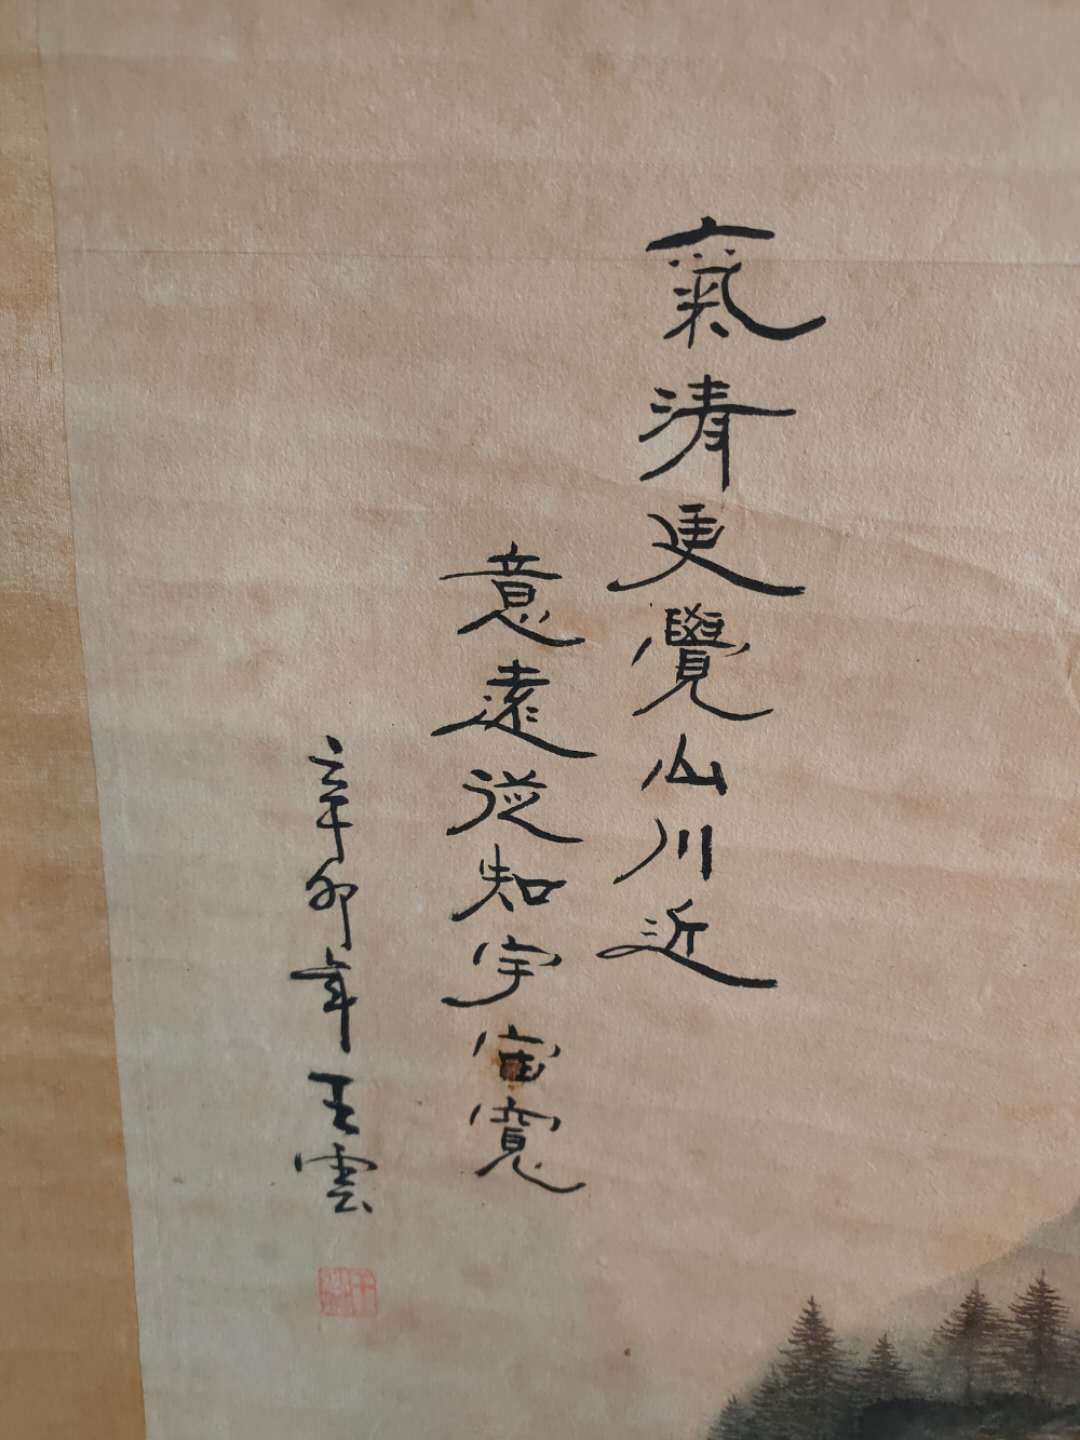 氣清更覺山川近
意遠從知宇宙寬
辛卯年王雲